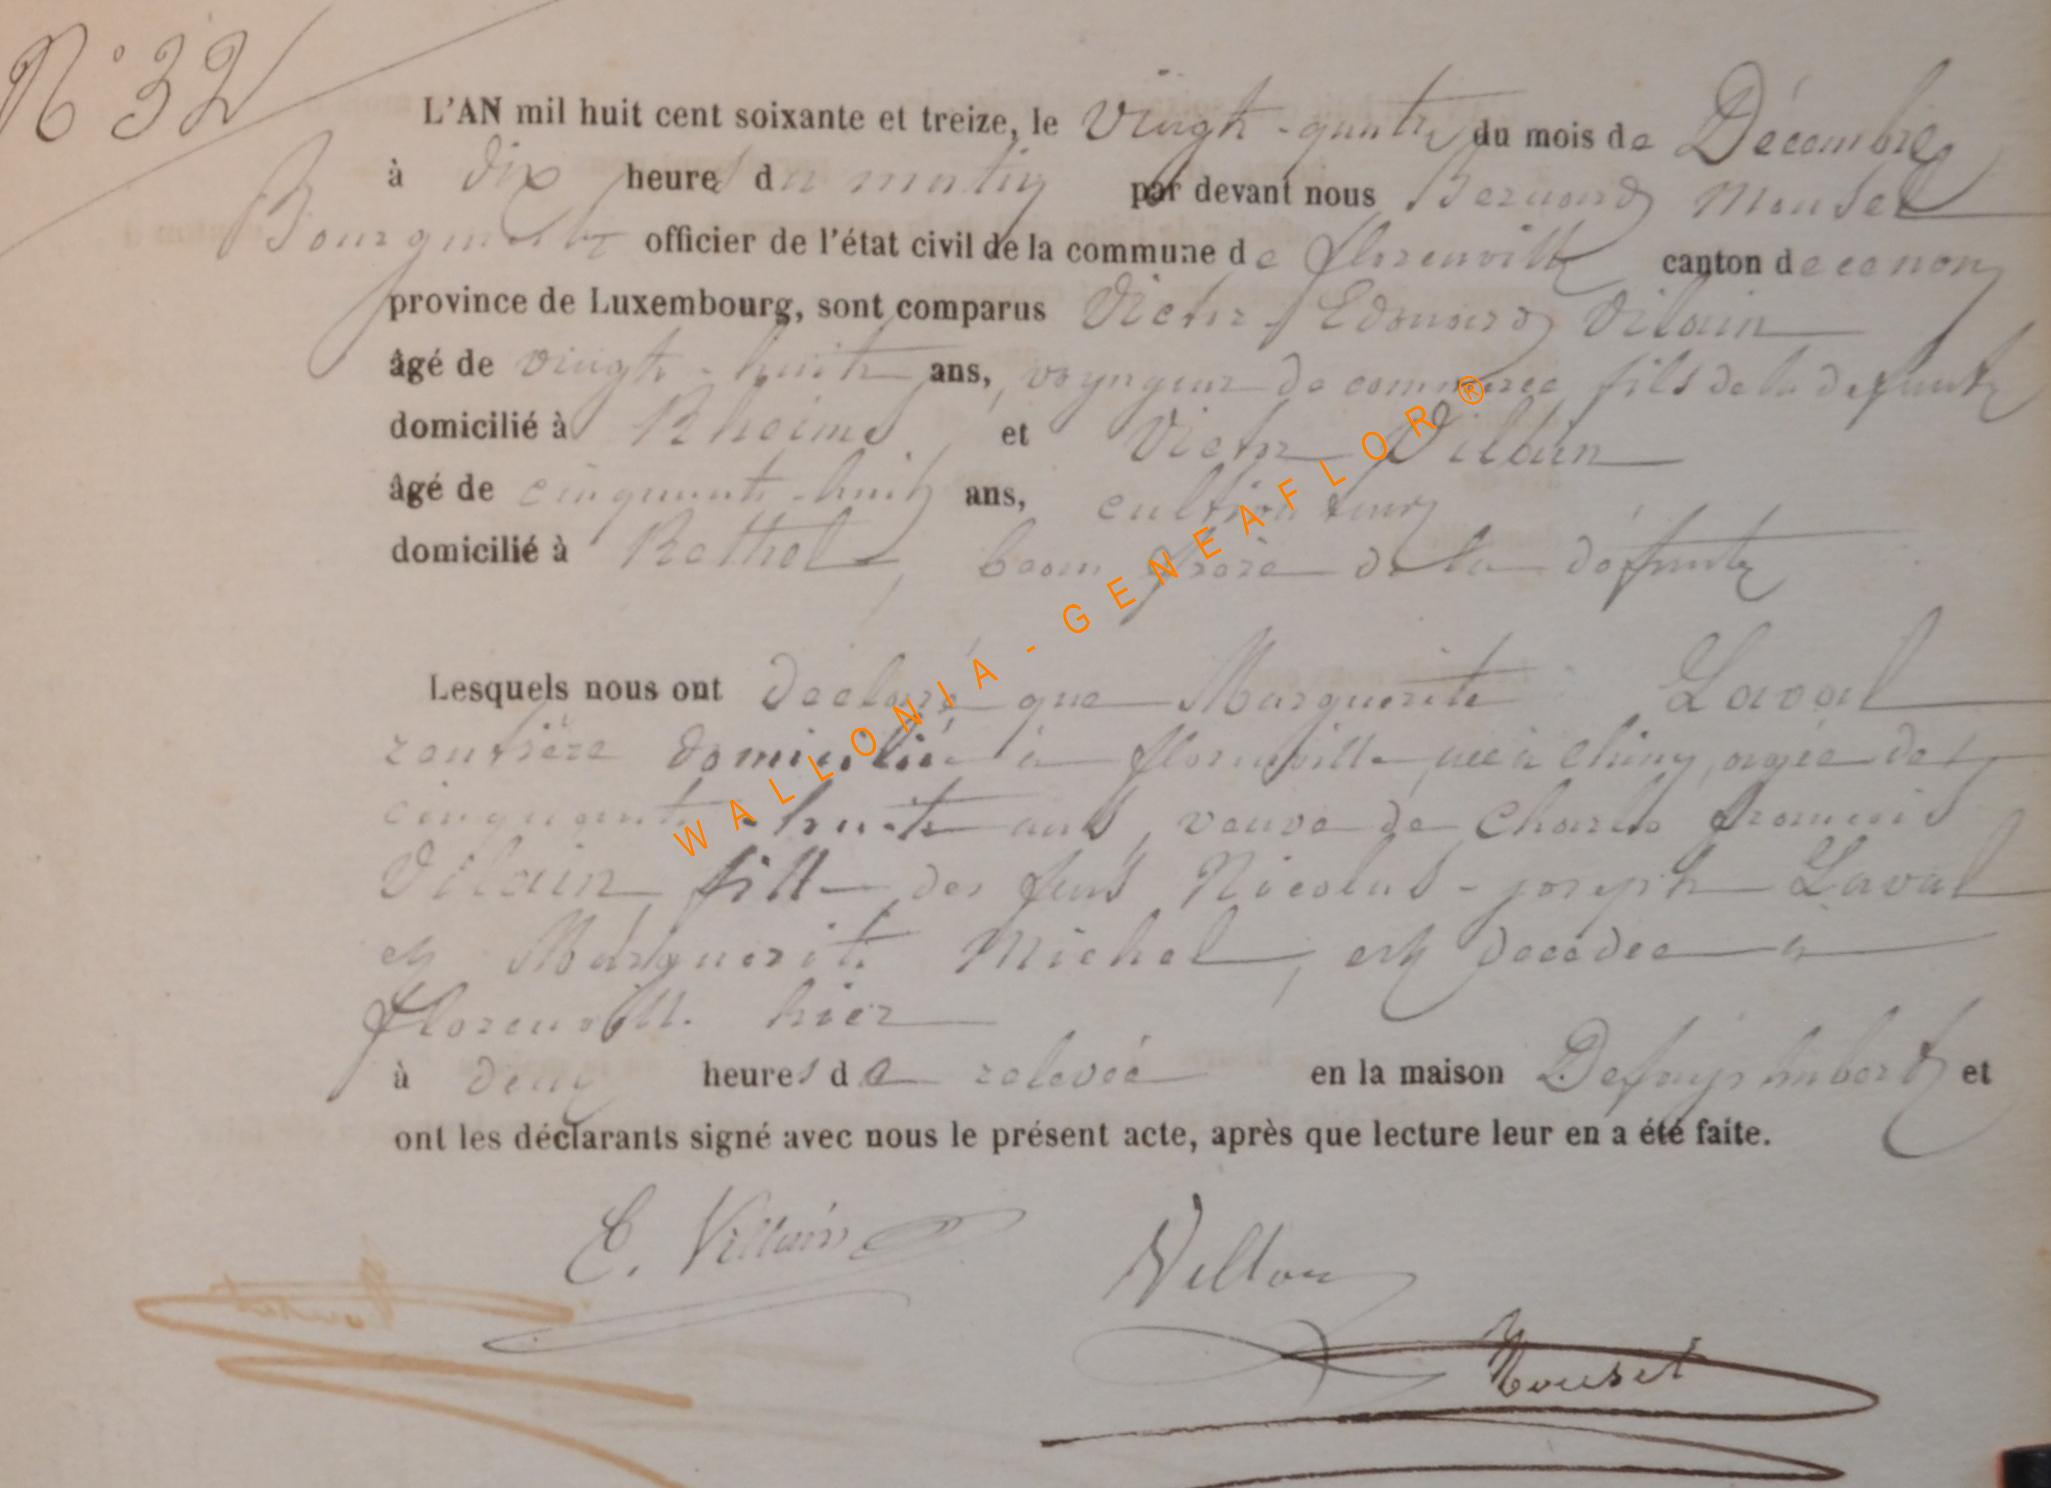 N° 32
L'AN mil huit cent soixante et treize, le Vingt-quatre du mois de Décembre
à dix heures du matin par devant nous Bernard Mouset
Bourgmestre officier de l'état civil de la commune de florenville canton de ce nom
province de Luxembourg, sont comparus Victor-Edouard Vilain
âgé de vingt-huit ans, voyageur de commerce, fils de la defunte
domicilié à Rheims et Victor Vilain
âgé de cinquante-huit ans, cultivateur
domicilié à Rethel, beau frère de la défunte
Lesquels nous ont déclaré que Marguerite Laval
rentière domiciliée à florenville, née à Chiny, agée de
cinquante-huit ans, veuve de Charles françois
Vilain, fille des feus Nicolas-joseph Laval
et Marguerite Michel, est decédée à
florenville hier
à deux heures de relevée en la maison Defays hubert et
ont les déclarants signé avec nous le présent acte, après que lecture leur en a été faite.
E. Villain
Mouset
WALLONIA - GENEAFLOR ®